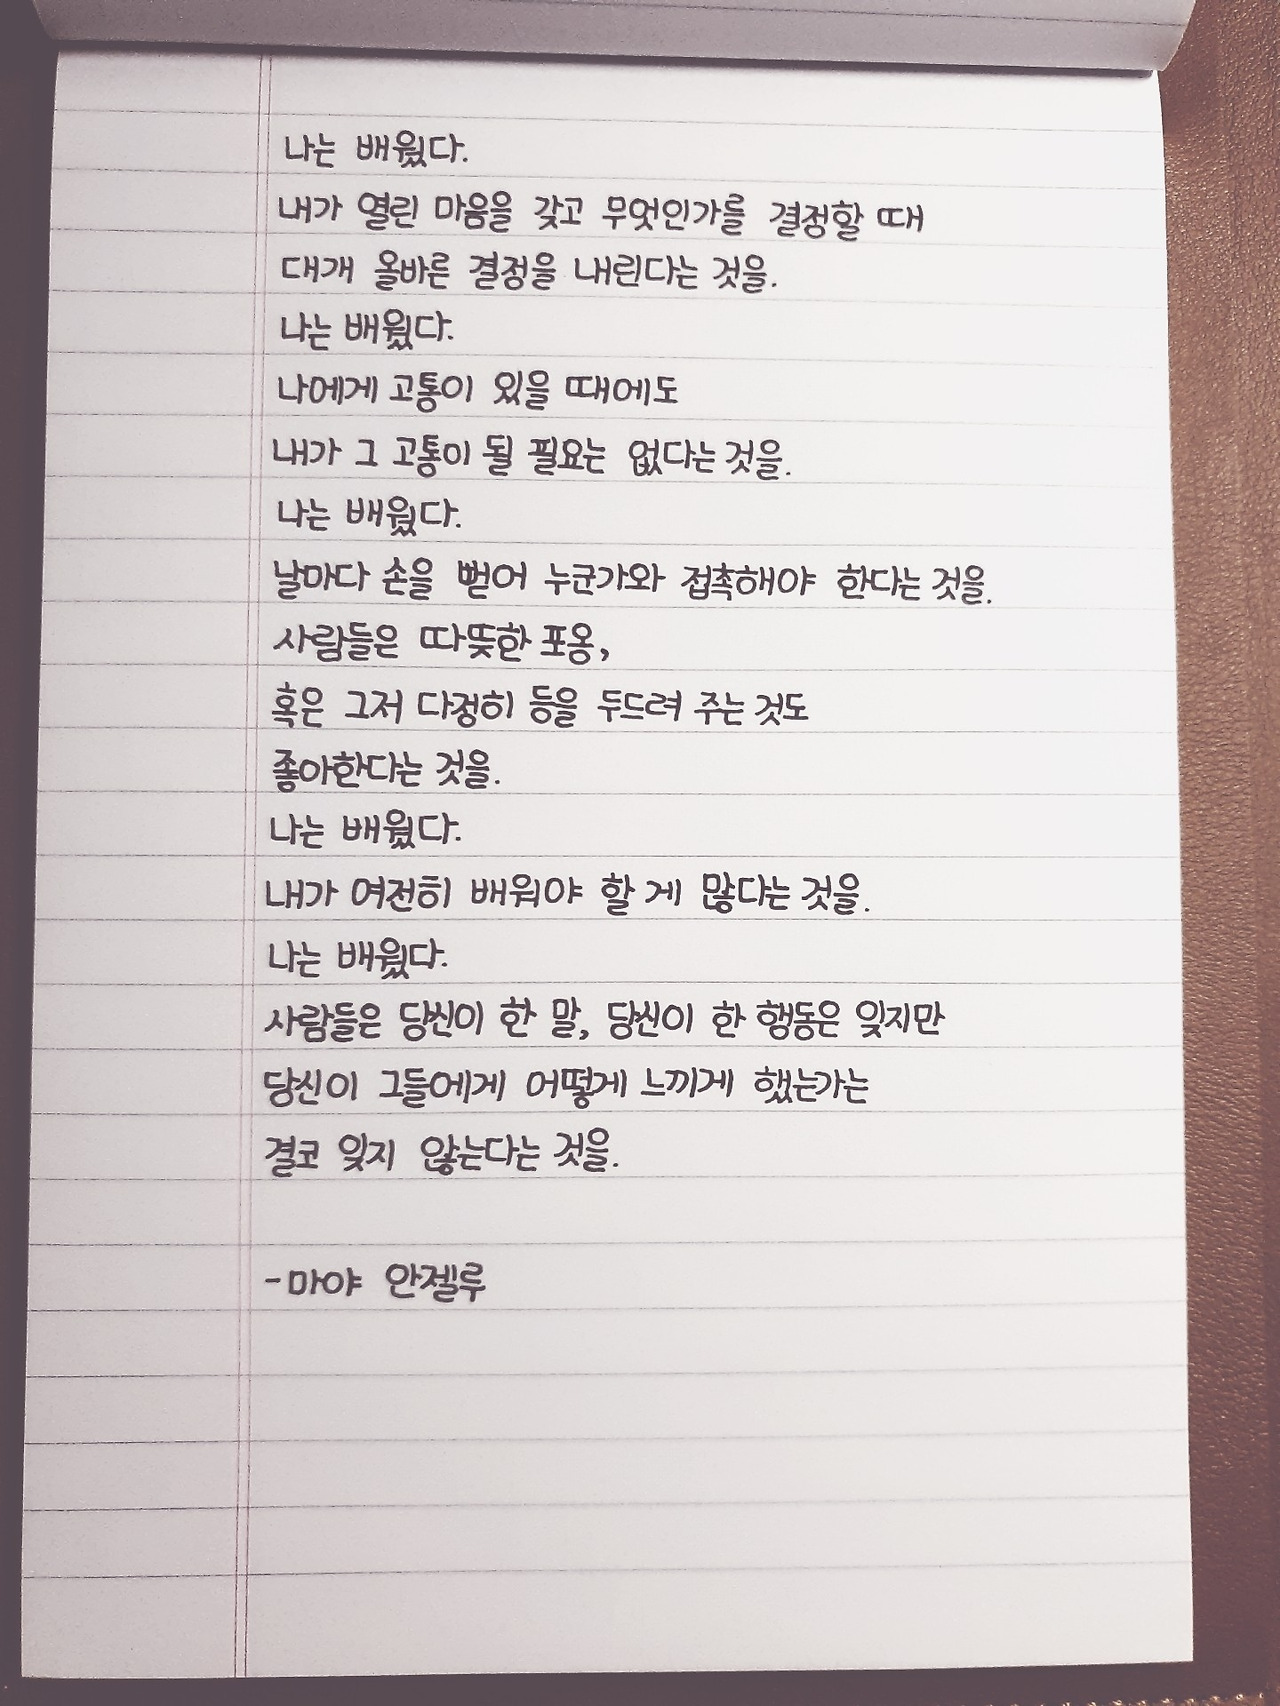 나는 배웠다.
내가 열린 마음을 갖고 무엇인가를 결정할 때
대개 올바른 결정을 내린다는 것을.
나는 배웠다.
나에게 고통이 있을 때에도
내가 그 고통이 될 필요는 없다는 것을.
나는 배웠다.
날마다 손을 뻗어 누군가와 접촉해야 한다는 것을.
사람들은 따뜻한 포옹,
혹은 그저 다정히 등을 두드려 주는 것도
좋아한다는 것을.
나는 배웠다.
내가 여전히 배워야 할 게 많다는 것을.
나는 배웠다.
사람들은 당신이 한 말, 당신이 한 행동은 잊지만
당신이 그들에게 어떻게 느끼게 했는가는
결코 잊지 않는다는 것을.
-마야 안젤루